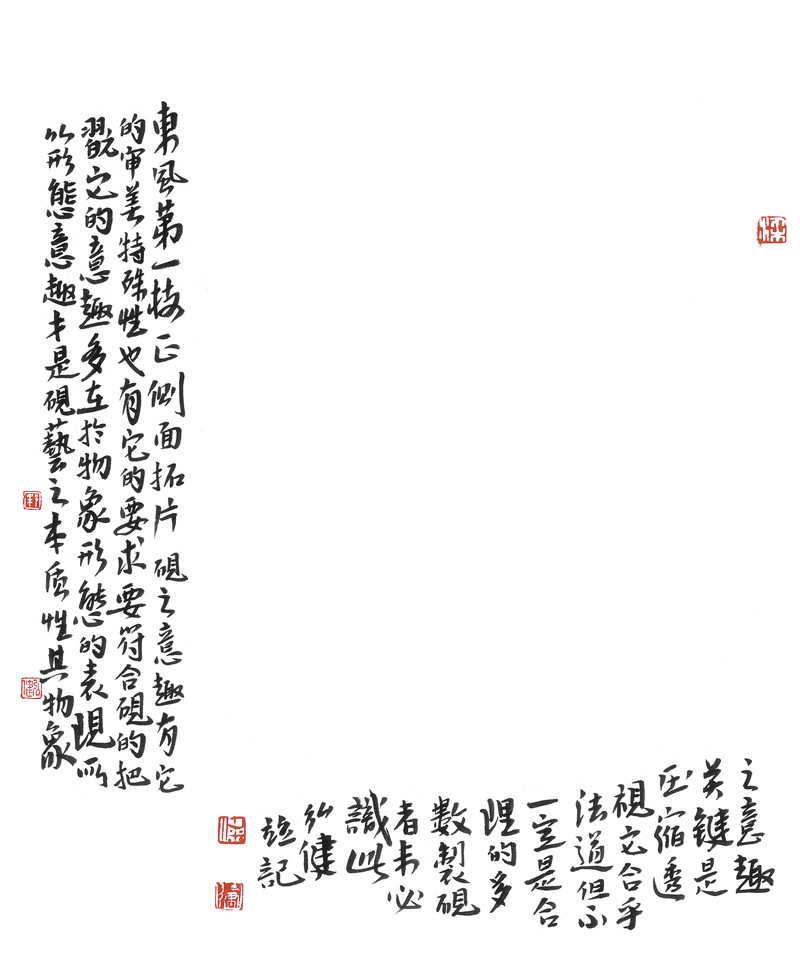 東风苐一枝正侧面拓片硯之意趣有它
的审美特殊性也有它的要求要符合硯的把
翫它的意趣多在於物象形態的表现所
以形態意趣才是硯藝之本质性其物象
之意趣
关鍵是
压缩透
視它合乎
法道但不
一定是合
理的多
數製硯
者未必
識此
弘健
誌記